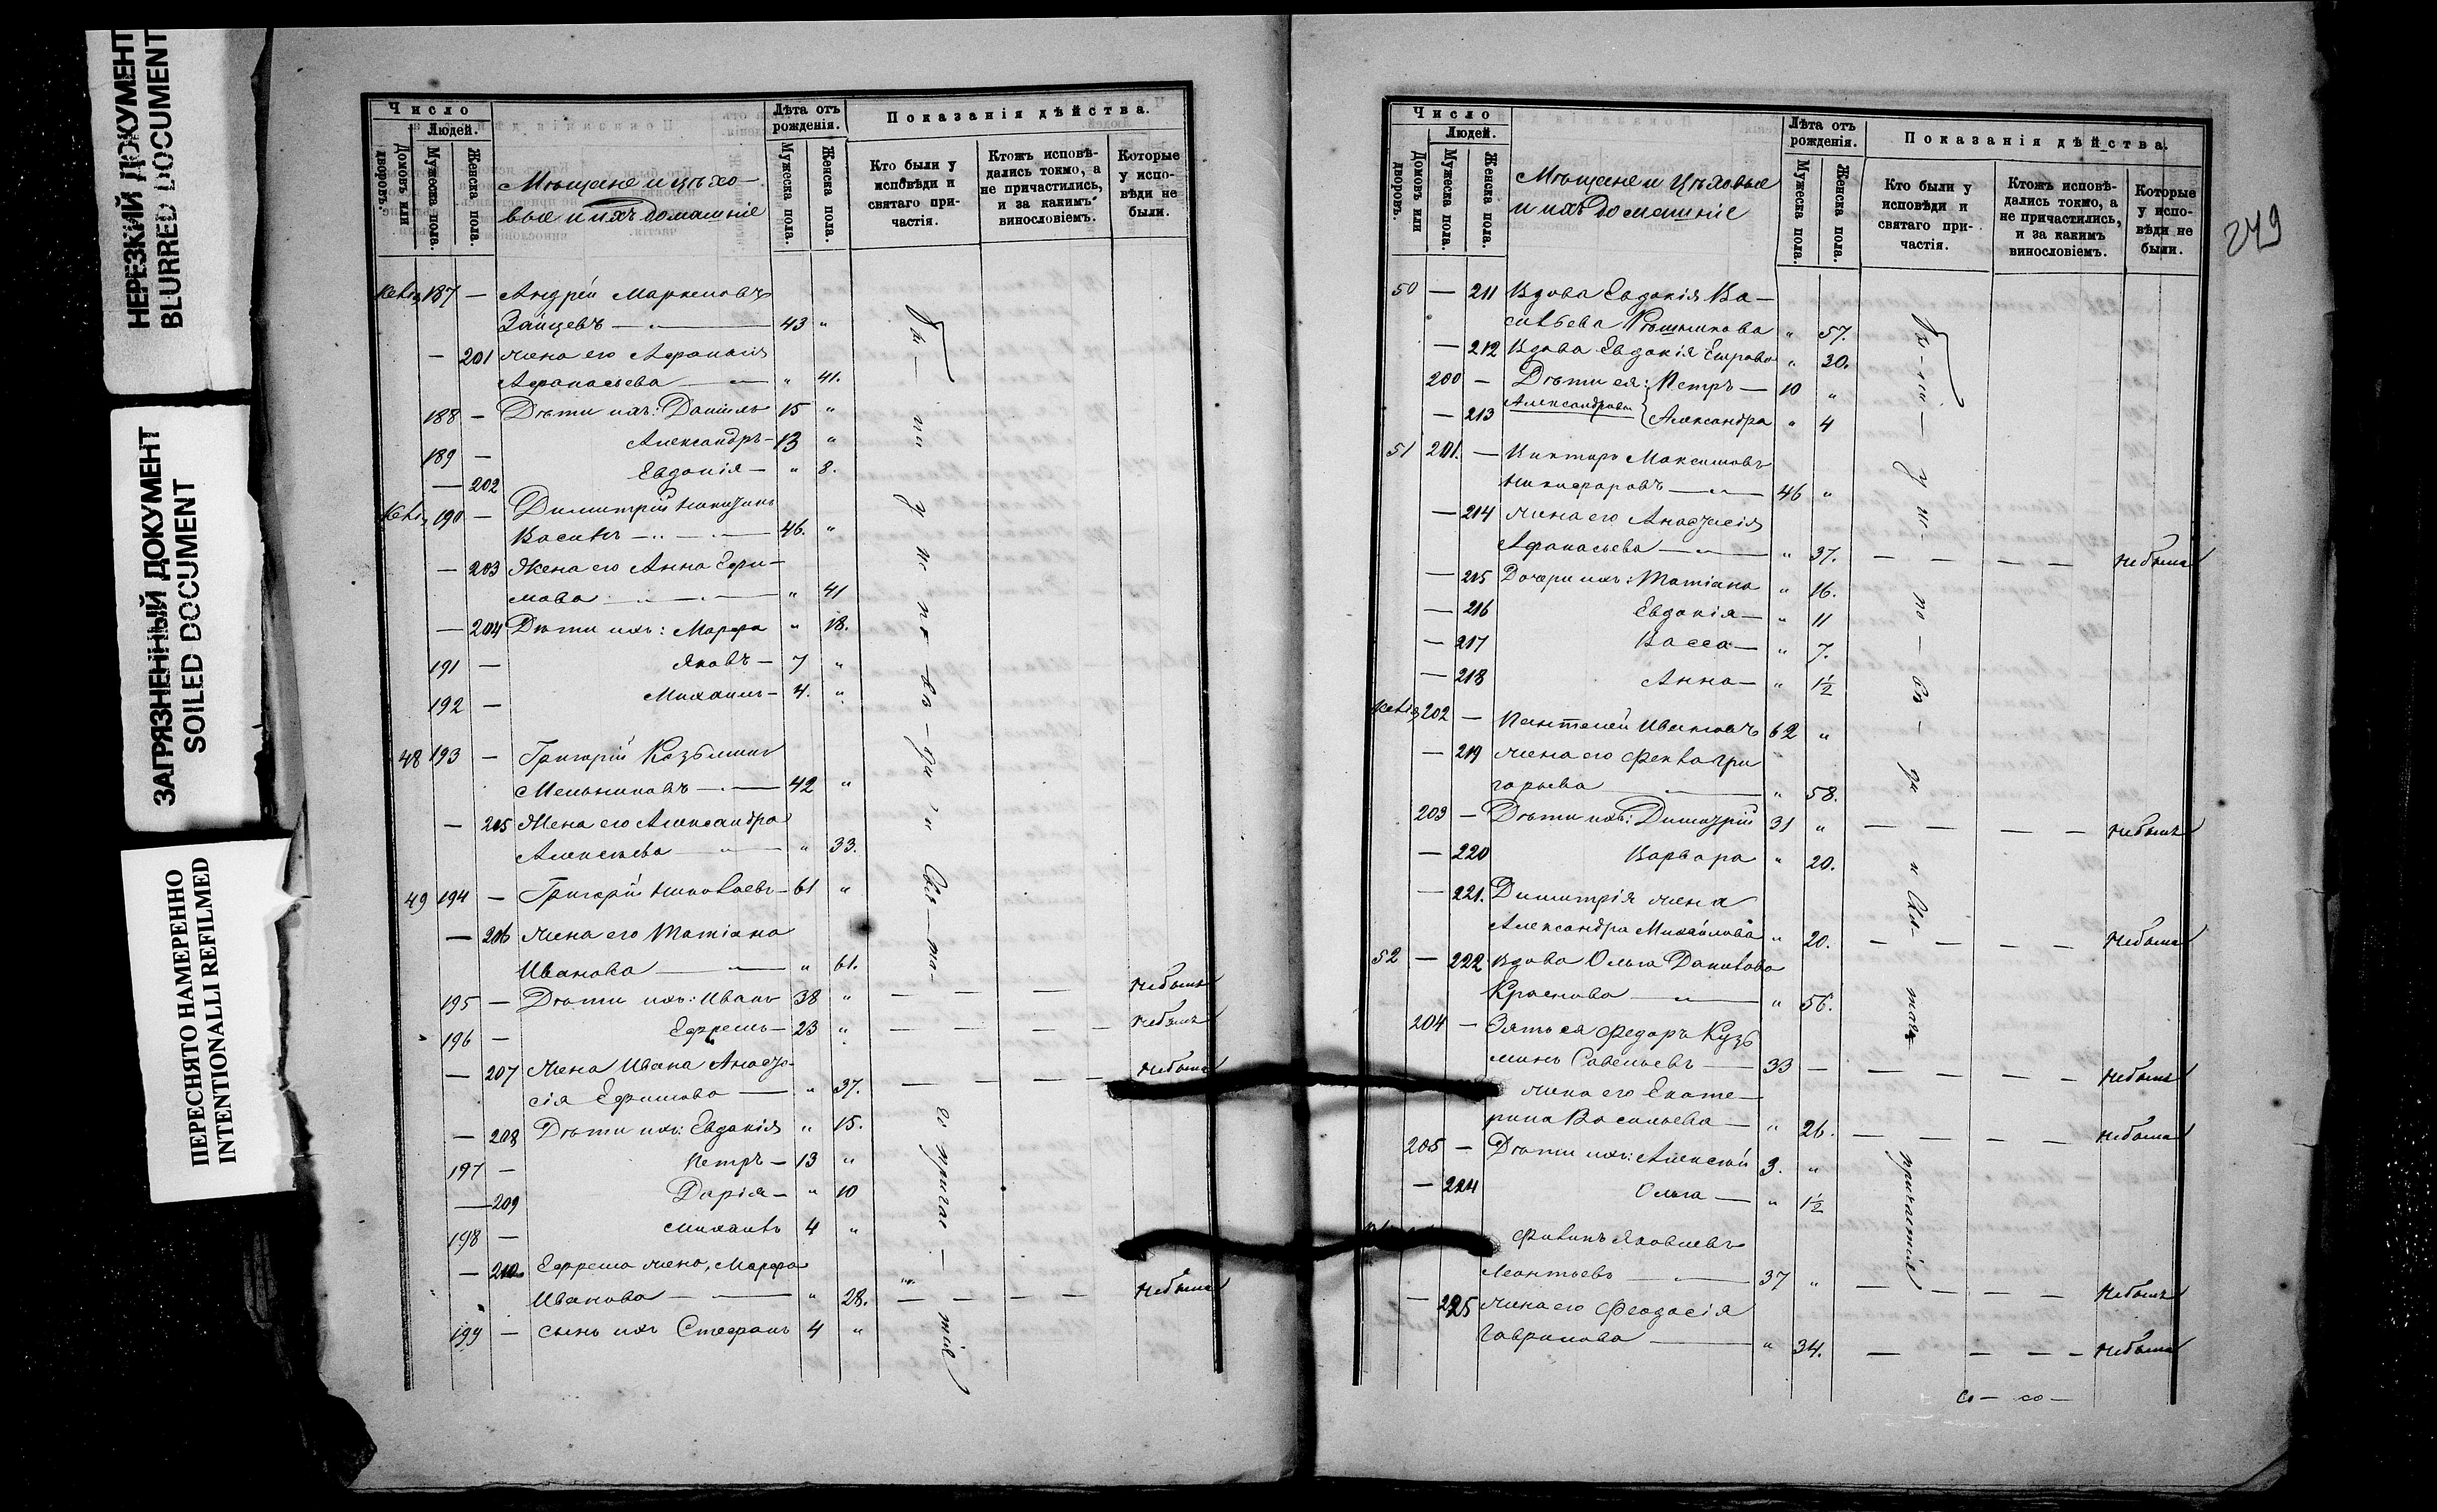 НЕРЕЗКИЙ ДОКУМЕНТ
BLURRED DOCUMENT
ЗАГРЯЗНЕННЫЙ ДОКУМЕНТ
SOILED DOCUMENT
ПЕРЕСНЯТО НАМЕРЕННО
INTENTIONALLI REFILMED
Число
Людей.
Домовъ или дворовъ.
Мужеска пола.
Женска пола.
Мѣщане и цѣхо-
вые и ихъ домашніе
Лѣта отъ рожденія.
Мужеска пола.
Женска пола.
Показанія дѣйства.
Кто были у исповѣди и святаго при-частія.
Ктожъ исповѣ-дались токмо, а не причастились, и за какимъ винословіемъ.
Которые у испо-вѣди не были.
187 — Андрей Маркеловъ
Зайцевъ — 43 "
— 201 жена его
Афанасьева — " 41.
188 — Дѣти ихъ: Даніилъ 15 "
189 — Александръ — 13 "
— 202 Евдокія — " 8.
190 — Димитрій
46. "
— 203 Жена его Анна Ефи-
мова — " 41
— 204 Дѣти ихъ: Марфа " 18.
191 — Яковъ — 7 "
192 — Михаилъ — 4. "
48 193 — Григорій Козьминъ
Мельниковъ — 42 "
— 205 Жена его Александра
Алексѣева — " 33.
49 194 — Григорій Николаевъ — 61 "
— 206 жена его Татіана
Иванова — " 61.
195 — Дѣти ихъ: Иванъ 38 " — — — небылъ
196 — Ефремъ — 23 " — — — — небылъ
— 207 Жена Ивана Анаста-
сія Ефимова — " 37. — — — — небыла
— 208 Дѣти ихъ: Евдокія " 15.
197 — Петръ — 13 "
— 209 Дарія — " 10
198 — Михаилъ 4 "
— 210 Ефрема жена, Марфа
Иванова — " 28. — — — — небыла
199 — сынъ ихъ Стефанъ 4 "
249
Число
Людей.
Домовъ или дворовъ.
Мужеска пола.
Женска пола.
Мѣщане и Цѣховые
и ихъ домашніе
Лѣта отъ рожденія.
Мужеска пола.
Женска пола.
Показанія дѣйства.
Кто были у исповѣди и святаго при-частія.
Ктожъ исповѣ-дались токмо, а не причастились, и за какимъ винословіемъ.
Которые у испо-вѣди не были.
50 — 211 Вдова Евдокія Ва-
сильева " 57.
— 212 Вдова Евдокія " 30.
200 — Дѣти ея: Петръ — 10 "
Александровы
— 213 Александра " 4
51 201. — Викторъ Максимовъ
Никифоровъ — 46 "
— 214 жена его Анастасія
Афанасьева — " 37. — — — — небыла
— 215 Дочери ихъ: Татіана " 16.
— 216 Евдокія — " 11
— 217 Васса — " 7.
— 218 Анна — " 1½
202 — Пантелей Ивановъ 62 "
— 219 жена его Фекла Гри
горьева — " 58.
203 — Дѣти ихъ: Димитрій 31 " — — — — небылъ
— 220 Варвара " 20.
— 221. Димитрія жена
Александра Михайлова " 20. — — — — небыла
52 — 222 вдова Ольга Данилова
Краснова — " 56.
204 — Зять ея Федоръ Кузь
минъ Савельевъ — 33 — — — — — небылъ
жена его Екате-
рина Васильева — " 26. — — — — небыла
205 — Дѣти ихъ: Алексѣй 3. "
— 224 Ольга — " 1½
Филипъ Яковлевъ
Леонтьевъ — 37 " — — — — небылъ
— 225 жена его Феодосія
Гаврилова — " 34. — — — — небыла